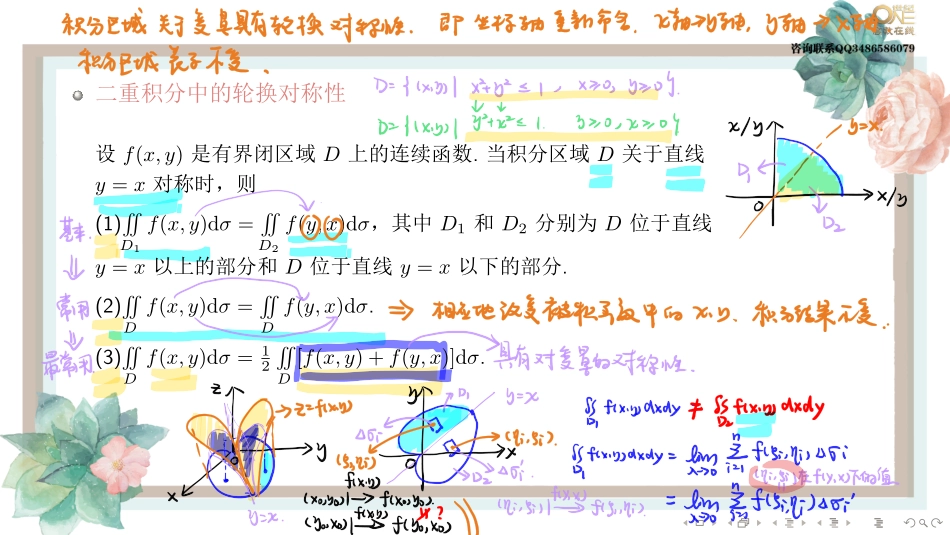 积分区域关于变量具有轮换对称性. 即 坐标轴重新命名. x轴→y轴, y轴→x轴
积分区域表示不变.
咨询联系QQ3486586079
二重积分中的轮换对称性
D={(x,y)| x²+y²≤1, x≥0, y≥0}.
D={(x,y)| y²+x²≤1. y≥0, x≥0}
设 f(x, y) 是有界闭区域 D 上的连续函数. 当积分区域 D 关于直线
y = x 对称时，则
基本.
(1)∬_{D₁} f(x, y)dσ = ∬_{D₂} f(y, x)dσ，其中 D₁ 和 D₂ 分别为 D 位于直线
y = x 以上的部分和 D 位于直线 y = x 以下的部分.
常用
(2)∬_D f(x, y)dσ = ∬_D f(y, x)dσ.
⇒ 相应地改变被积函数中的 x,y. 积分结果不变.
最常用
(3)∬_D f(x, y)dσ = ½ ∬_D [f(x, y) + f(y, x)]dσ.
具有对变量的对称性.
x/y
y=x.
D₁
O
x/y
D₂
z
z=f(x,y)
y
x
y=x.
y
D₁
y=x
Δσi
(ξi,ηi)
(ηi,ξi)
O
x
D₂
Δσi'
(x₀,y₀)|—f(x,y)→f(x₀,y₀).
(y₀,x₀)|—f(x,y)→f(y₀,x₀)
?
(ηi,ξi)|—f(y,x)→f(ξi,ηi).
∬_{D₁} f(x,y)dxdy ≠ ∬_{D₂} f(x,y)dxdy
∬_{D₁} f(x,y)dxdy = lim_{λ→0} Σ_{i=1}^{n} f(ξi,ηi)Δσi
(ηi,ξi)在f(y,x)下的值
= lim_{λ→0} Σ_{i=1}^{n} f(ξi,ηi)Δσi'